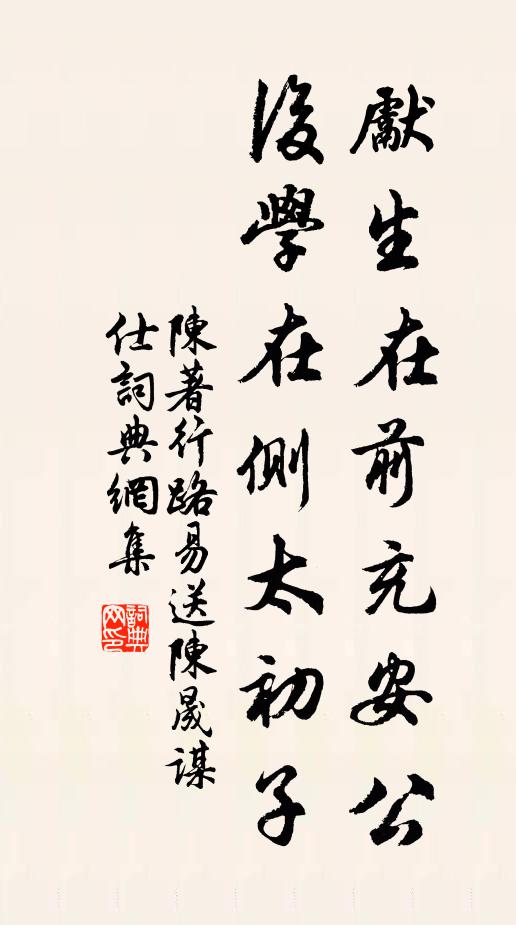 獻生在前充安公
後學在側太初子
陳著行路易送陳晟謀
仕詞典網集
詞典网印